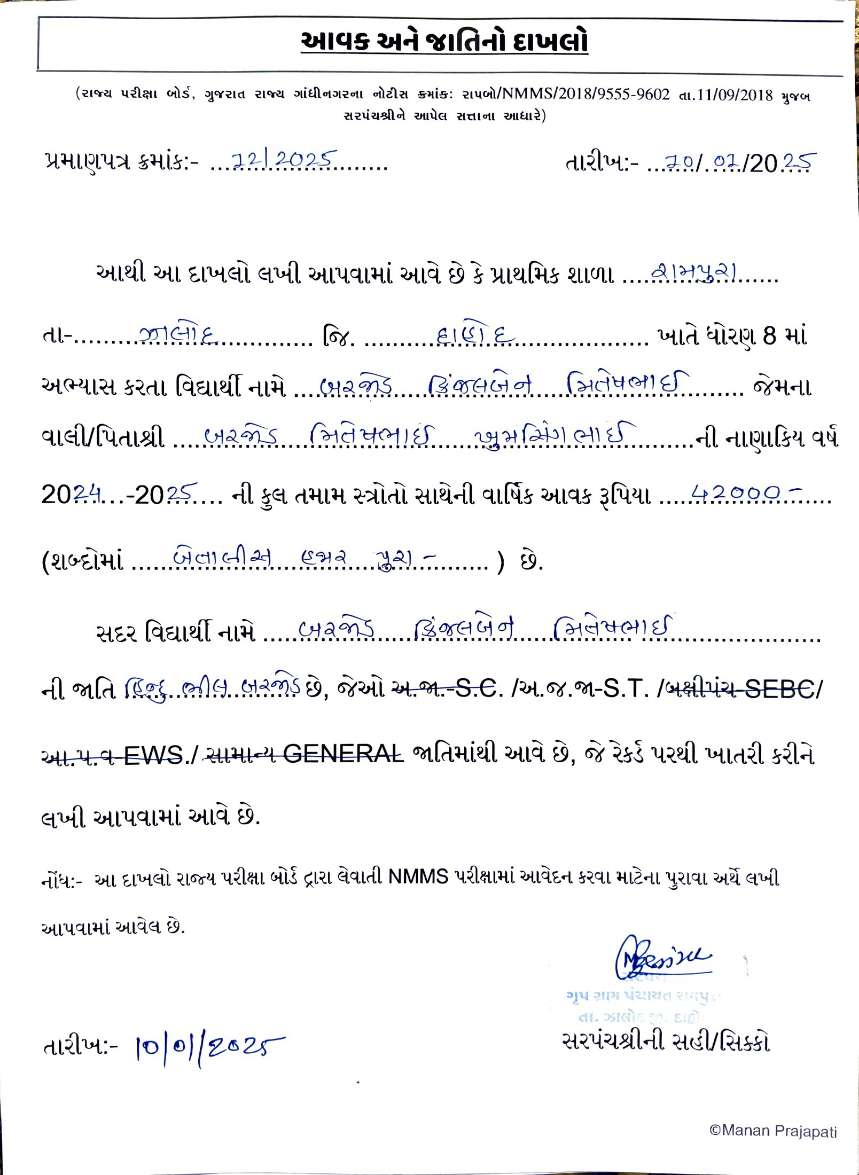 આવક અને જાતિનો દાખલો
(રાજ્ય પરીક્ષા બોર્ડ, ગુજરાત રાજ્ય ગાંધીનગરના નોટીસ ક્રમાંક: રાપબો/NMMS/2018/9555-9602 તા.11/09/2018 મુજબ
સરપંચશ્રીને આપેલ સત્તાના આધારે)
પ્રમાણપત્ર ક્રમાંક:- ...૧૨/2025........ તારીખ:- ...૧૦/.૦૧/2025
આથી આ દાખલો લખી આપવામાં આવે છે કે પ્રાથમિક શાળા ....રામપુરા......
તા-.........ઝાલોદ............... જિ. ..........દાહોદ................... ખાતે ધોરણ 8 માં
અભ્યાસ કરતા વિદ્યાર્થી નામે ...બરજોડ કિંજલબેન મિતેષભાઈ......... જેમના
વાલી/પિતાશ્રી ....બરજોડ મિતેષભાઈ ખુમસિંગભાઈ.........ની નાણાકિય વર્ષ
2024...-2025.... ની કુલ તમામ સ્ત્રોતો સાથેની વાર્ષિક આવક રૂપિયા .....૪2૦૦૦-.....
(શબ્દોમાં ......બેતાલીસ હજાર પુરા-........ ) છે.
સદર વિદ્યાર્થી નામે .....બરજોડ કિંજલબેન મિતેષભાઈ....................
ની જાતિ હિન્દુ ભીલ બરજોડ છે, જેઓ અ.જા.-S.C. /અ.જ.જા-S.T. /બક્ષીપંચ-SEBC/
આ.પ.વ-EWS./ સામાન્ય GENERAL જાતિમાંથી આવે છે, જે રેકર્ડ પરથી ખાતરી કરીને
લખી આપવામાં આવે છે.
નોંધ:- આ દાખલો રાજ્ય પરીક્ષા બોર્ડ દ્વારા લેવાતી NMMS પરીક્ષામાં આવેદન કરવા માટેના પુરાવા અર્થે લખી
આપવામાં આવેલ છે.
ગૃપ ગ્રામ પંચાયત રામપુરા
તા. ઝાલોદ જી. દાહોદ
તારીખ:- 10/01/2025 સરપંચશ્રીની સહી/સિક્કો
©Manan Prajapati